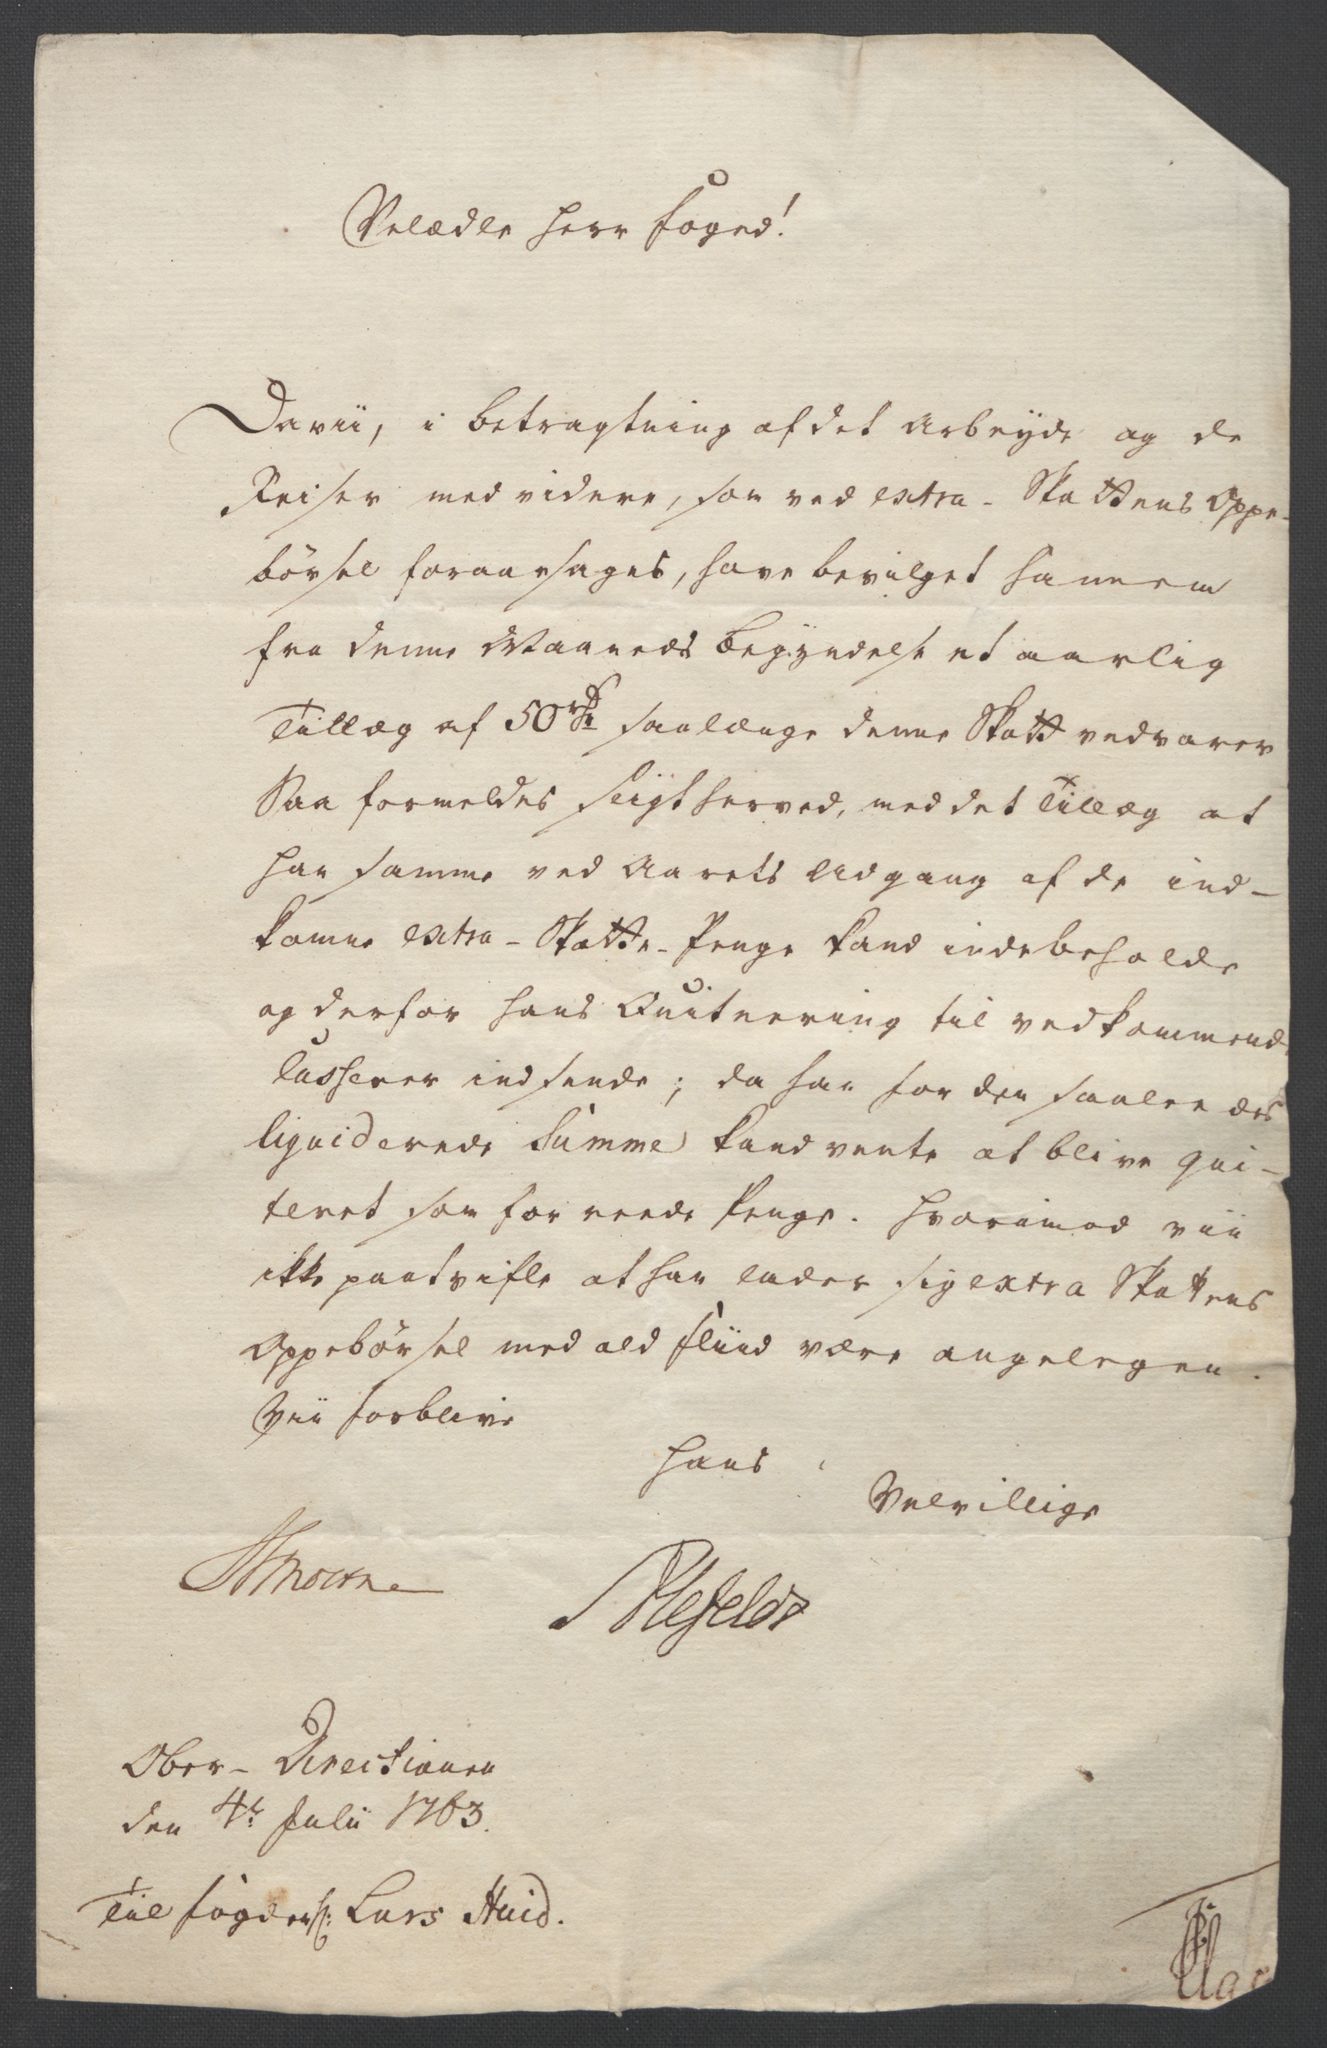 Velædle Herr Foged!
Da vii, i betragtning af det Arbeyde og de
Reiser med videre, som ved extra-Skattens Oppe-
børsel foraarsages, have bevilget hannem
fra denne Maaneds Begyndelse et aarlig
Tillæg af 50 rdr saalænge denne Skatt vedvarer
Saa formeldes sligt herved, med det Tillæg at
han samme ved Aarets Udgang af de ind-
komne extra-Skatte-Penge kand indebeholde
og derfor hans Quitering til vedkommende
Casserer indsende; da han for den saaleedes
liqviderede Summe kand vente at blive qvi-
teret som for reede Penge. Hvorimod vii
ikke paatvifle at han lader sig extra Skattens
Oppebørsel med ald Fliid være angelegen.
Vii forblive
Hans
Velvillige
Ahlefeldt
Ober-Directionen
den 4de Julii 1763.
Till Fogden Sr: Lars Huid.